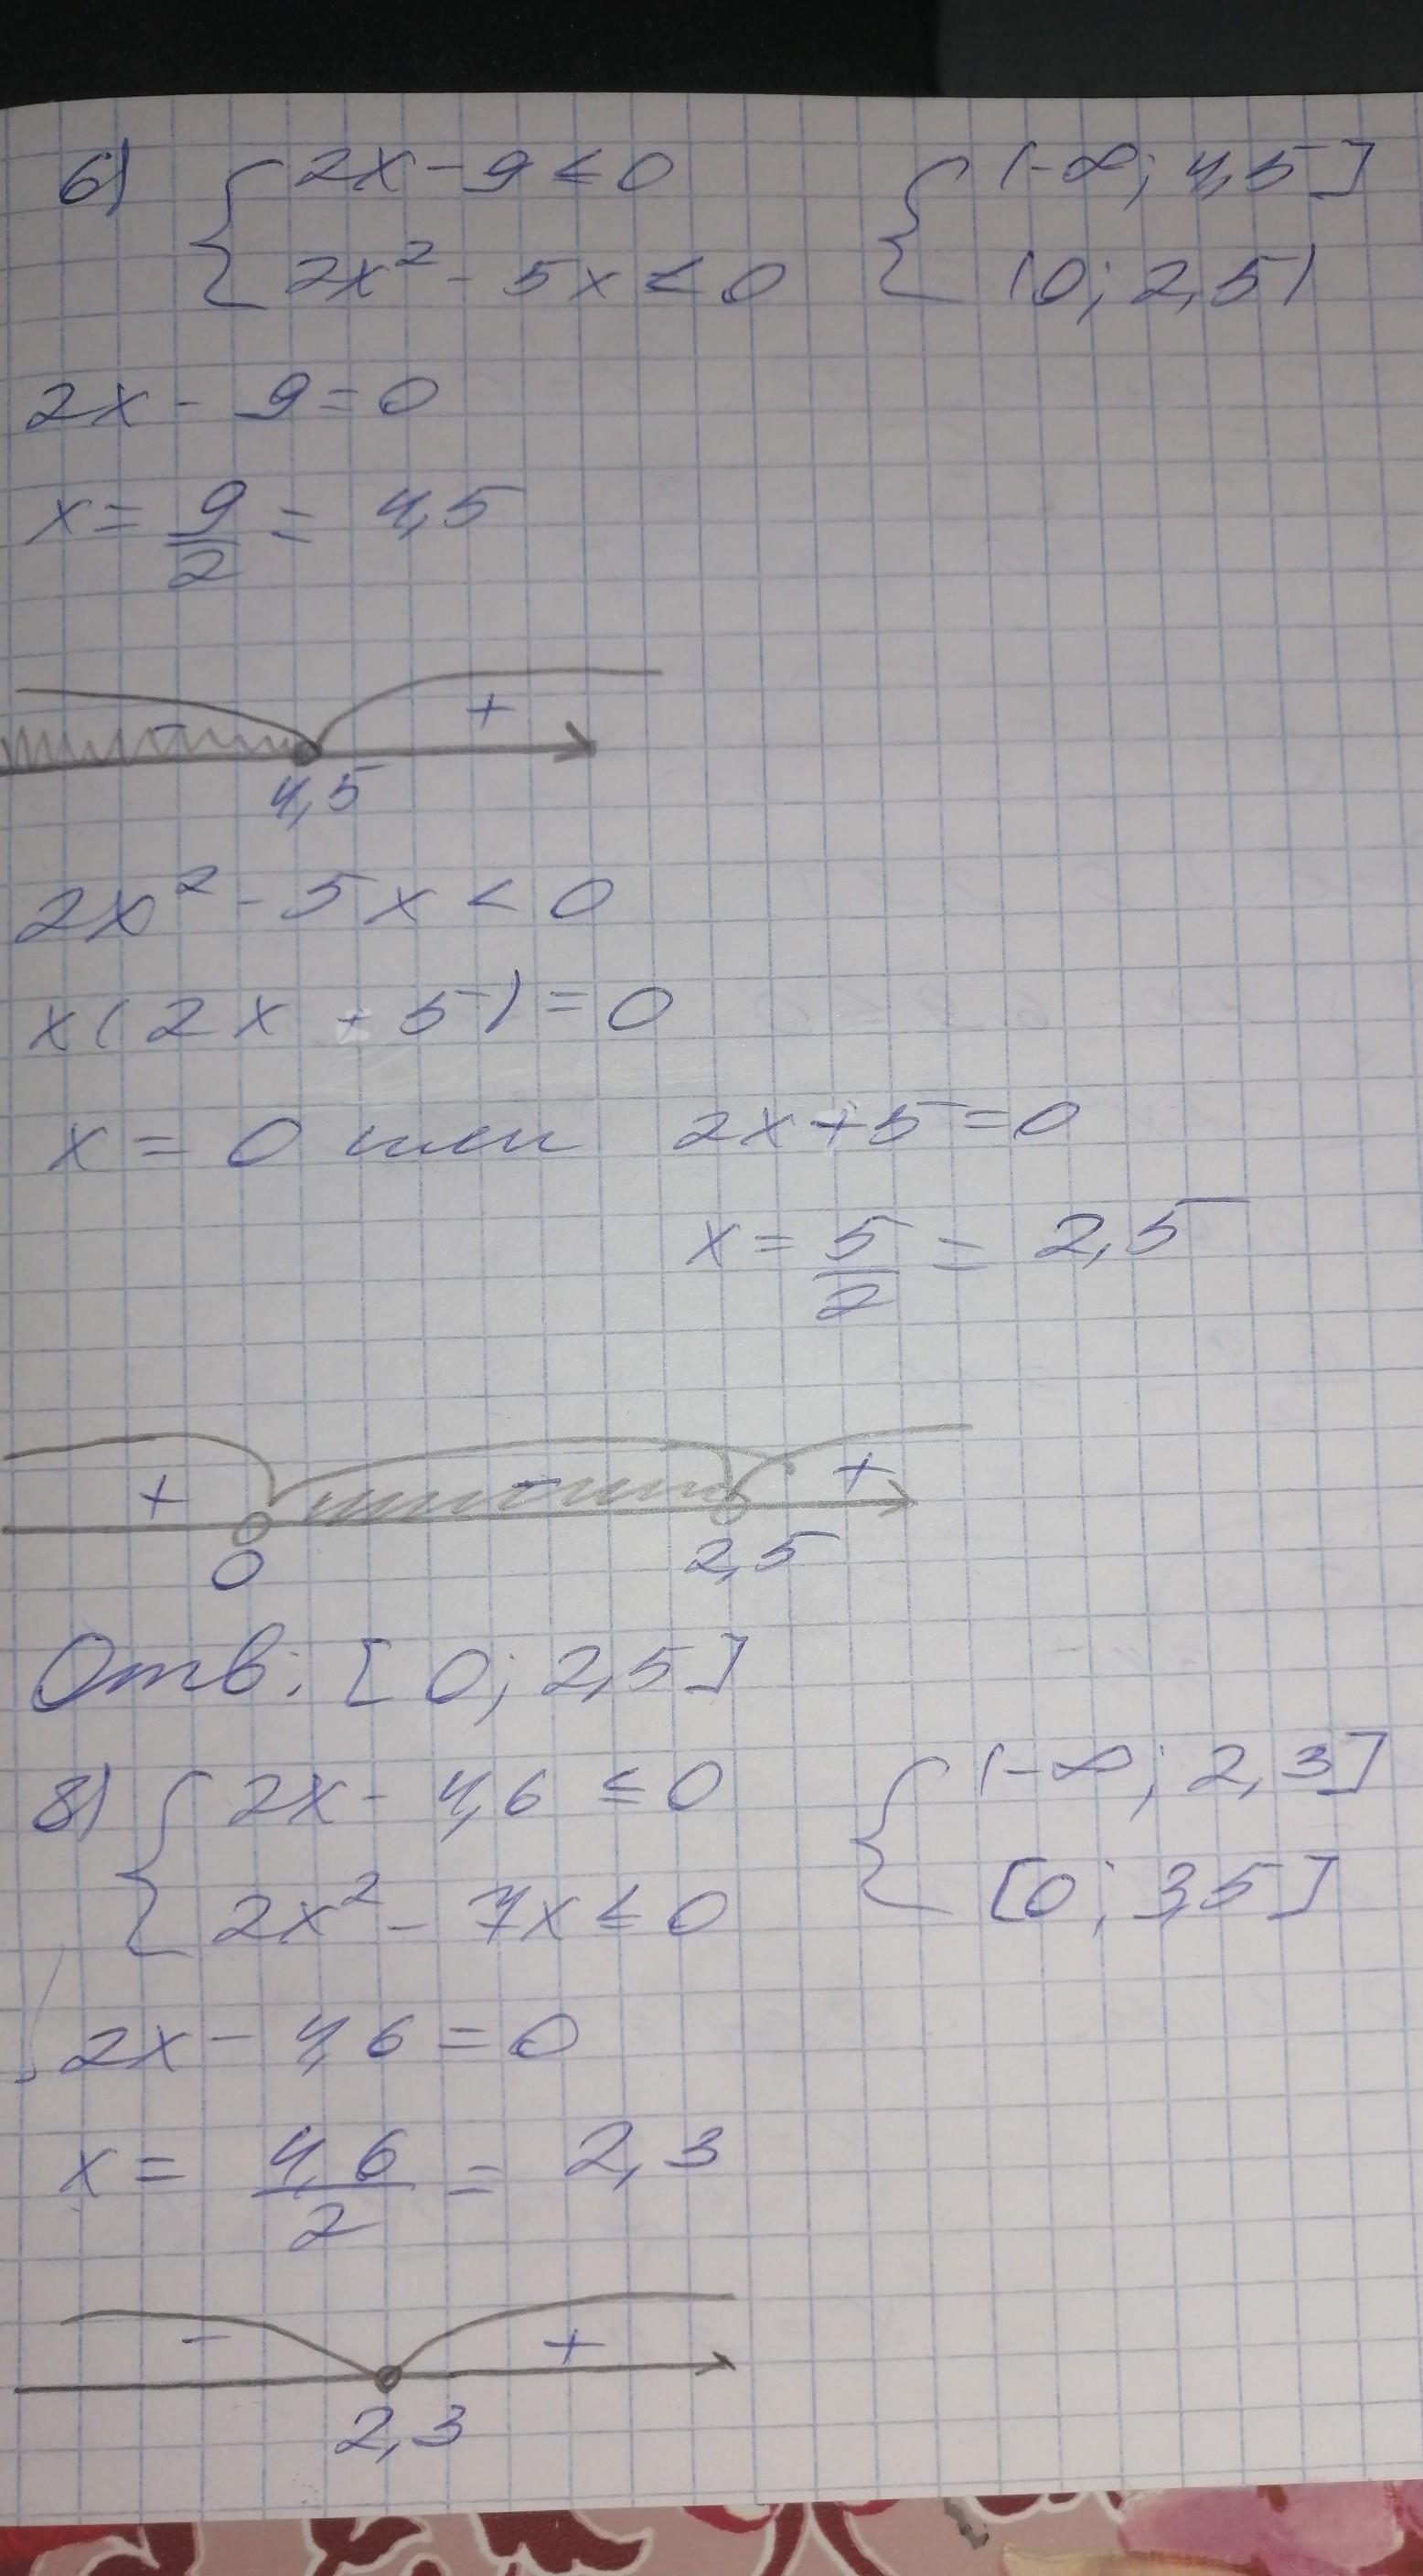 6) { 2x - 9 ≤ 0 { (-∞; 4,5]
2x² - 5x < 0 (0; 2,5)
2x - 9 = 0
x = 9/2 = 4,5
- +
4,5
2x² - 5x < 0
x(2x + 5) = 0
x = 0 или 2x + 5 = 0
x = 5/2 = 2,5
+ - +
0 2,5
Отв: [0; 2,5]
8) { 2x - 4,6 ≤ 0 { (-∞; 2,3]
2x² - 7x ≤ 0 [0; 3,5]
2x - 4,6 = 0
x = 4,6/2 = 2,3
- +
2,3